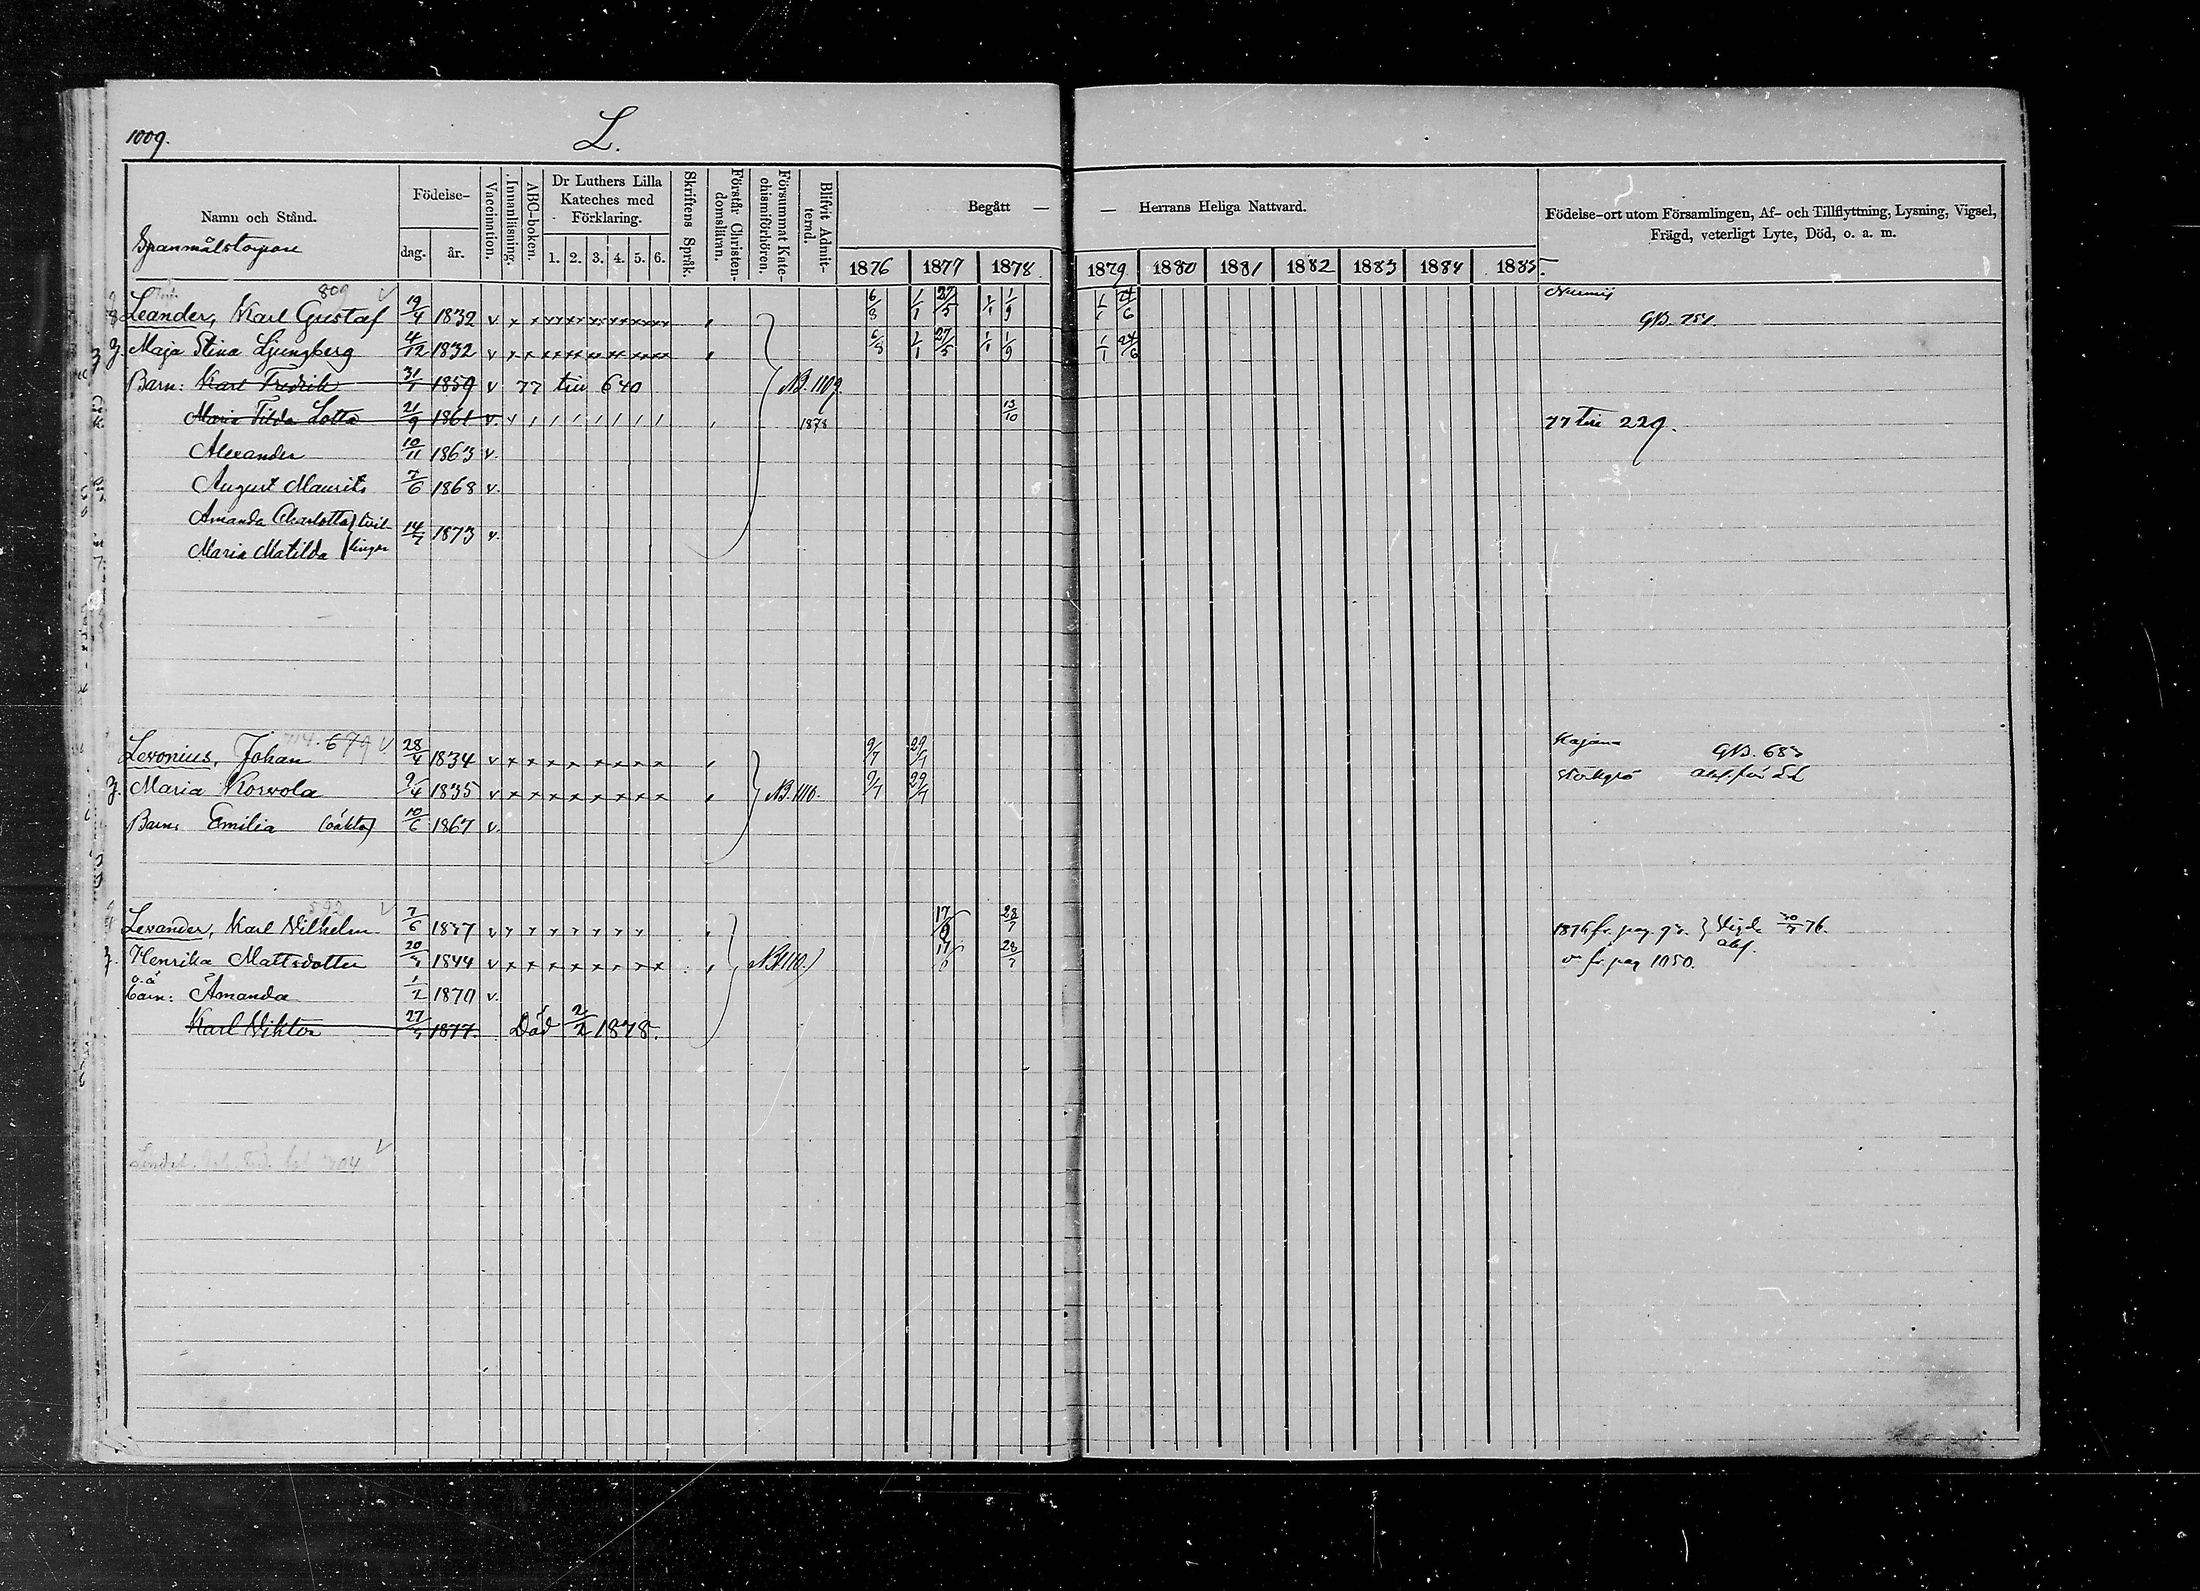 1009.
L.
Namn och Stånd.
Födelse-
dag.
år.
Vaccination.
Innanläsning.
ABC-boken.
Dr Luthers Lilla
Kateches med
Förklaring.
1. 2. 3. 4. 5. 6.
Skriftens Språk.
Förstår Christen-
domsläran.
Försummat Kate-
chismiförhören.
Blifvit Admit-
terad.
Begått —
— Herrans Heliga Nattvard.
Födelse-ort utom Församlingen, Af- och Tillflyttning, Lysning, Vigsel,
Frägd, veterligt Lyte, Död, o. a. m.
1876 1877 1878 1879 1880 1881 1882 1883 1884 1885
809
Leander, Karl Gustaf 19/4 1832 v 6/8 1/1 27/5 1/1 1/9 1/1 24/6 Nurmis
GB. 751.
Maja Stina Ljungberg 4/12 1832 v 6/8 1/1 27/5 1/1 1/9 1/1 24/6
Barn: Karl Fredrik 31/1 1859 v 77 till 640 NB. 1109.
Maria Tilda Lotta 21/9 1861 v. 1878 13/10 77 till 229.
Alexander 10/11 1863 v.
August Maurits 7/6 1868 v.
Amanda Charlotta tvil-
14/7 1873 v.
Maria Matilda lingar
714. 679 v
Levonius, Johan 28/4 1834 v 9/7 29/7 Kajana GB. 683
Maria Korvola 9/4 1835 v NB. 1110. 9/7 29/7
Barn: Emilia (oäkta) 10/6 1867 v.
592 v
Levander, Karl Vilhelm 7/6 1877 v 17/6 28/7 1876 fr. pag. Vigde 30/7 76.
Henrika Mattsdotter 20/7 1844 v NB 1110. 17/6 28/7 fr. pag 1050.
o.ä
barn: Amanda 1/2 1870 v.
Karl Viktor 27/7 1877. Död 2/2 1878.
704 v